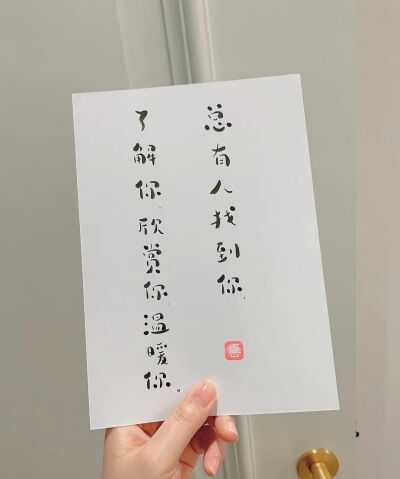 总有人找到你,
了解你.欣赏你,温暖你。